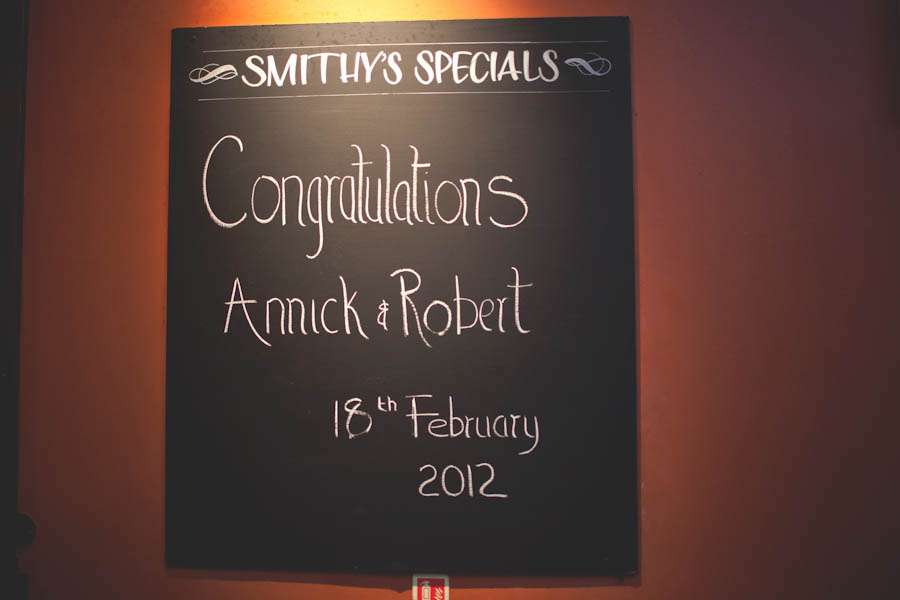 SMITHY'S SPECIALS
Congratulations
Annick & Robert
18th February
2012